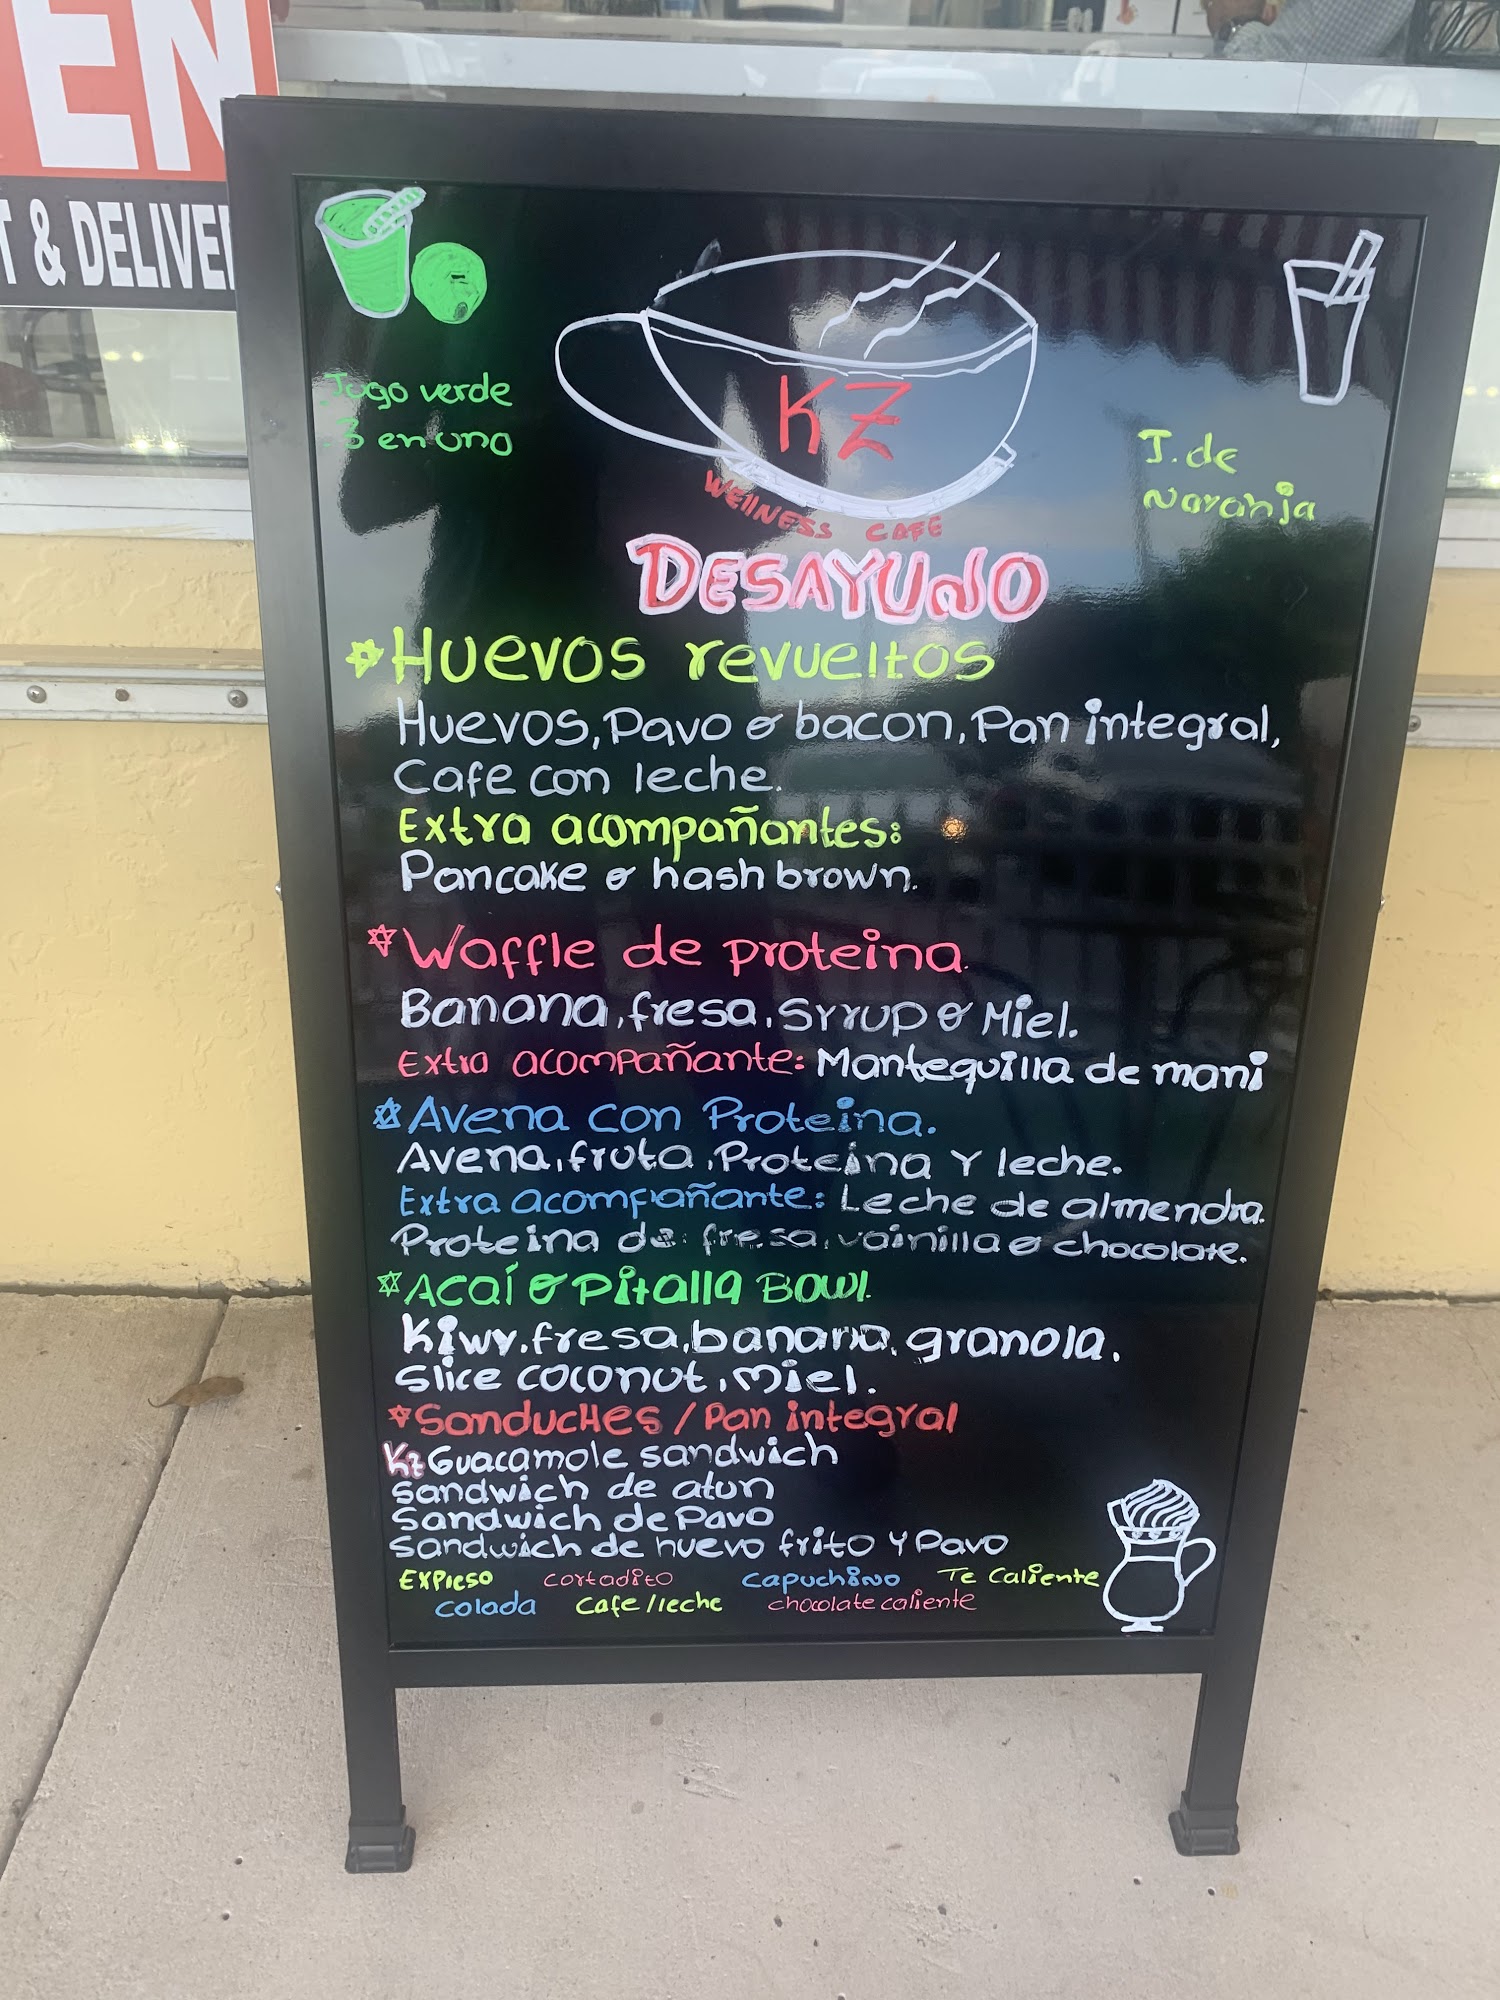 EN
T & DELIVE
Jugo verde
3 en uno
KZ
Wellness Cafe
J. de
Naranja
DESAYUNO
Huevos revueltos
Huevos, Pavo o bacon, Pan integral,
Cafe con leche.
Extra acompañantes:
Pancake o hash brown.
Waffle de proteina.
Banana, fresa, syrup o Miel.
Extra acompañante: Mantequilla de mani
Avena con Proteina.
Avena, fruta, Proteina Y leche.
Extra acompañante: Leche de almendra.
Proteina de: fresa, vainilla o chocolate.
Acaí o Pitalla Bowl.
Kiwy, fresa, banana, granola,
Slice coconut, Miel.
Sanduches / Pan integral
KZ Guacamole sandwich
Sandwich de atun
Sandwich de Pavo
Sandwich de huevo frito Y Pavo
Expreso Cortadito Capuchino Te Caliente
Colada Cafe/leche chocolate caliente